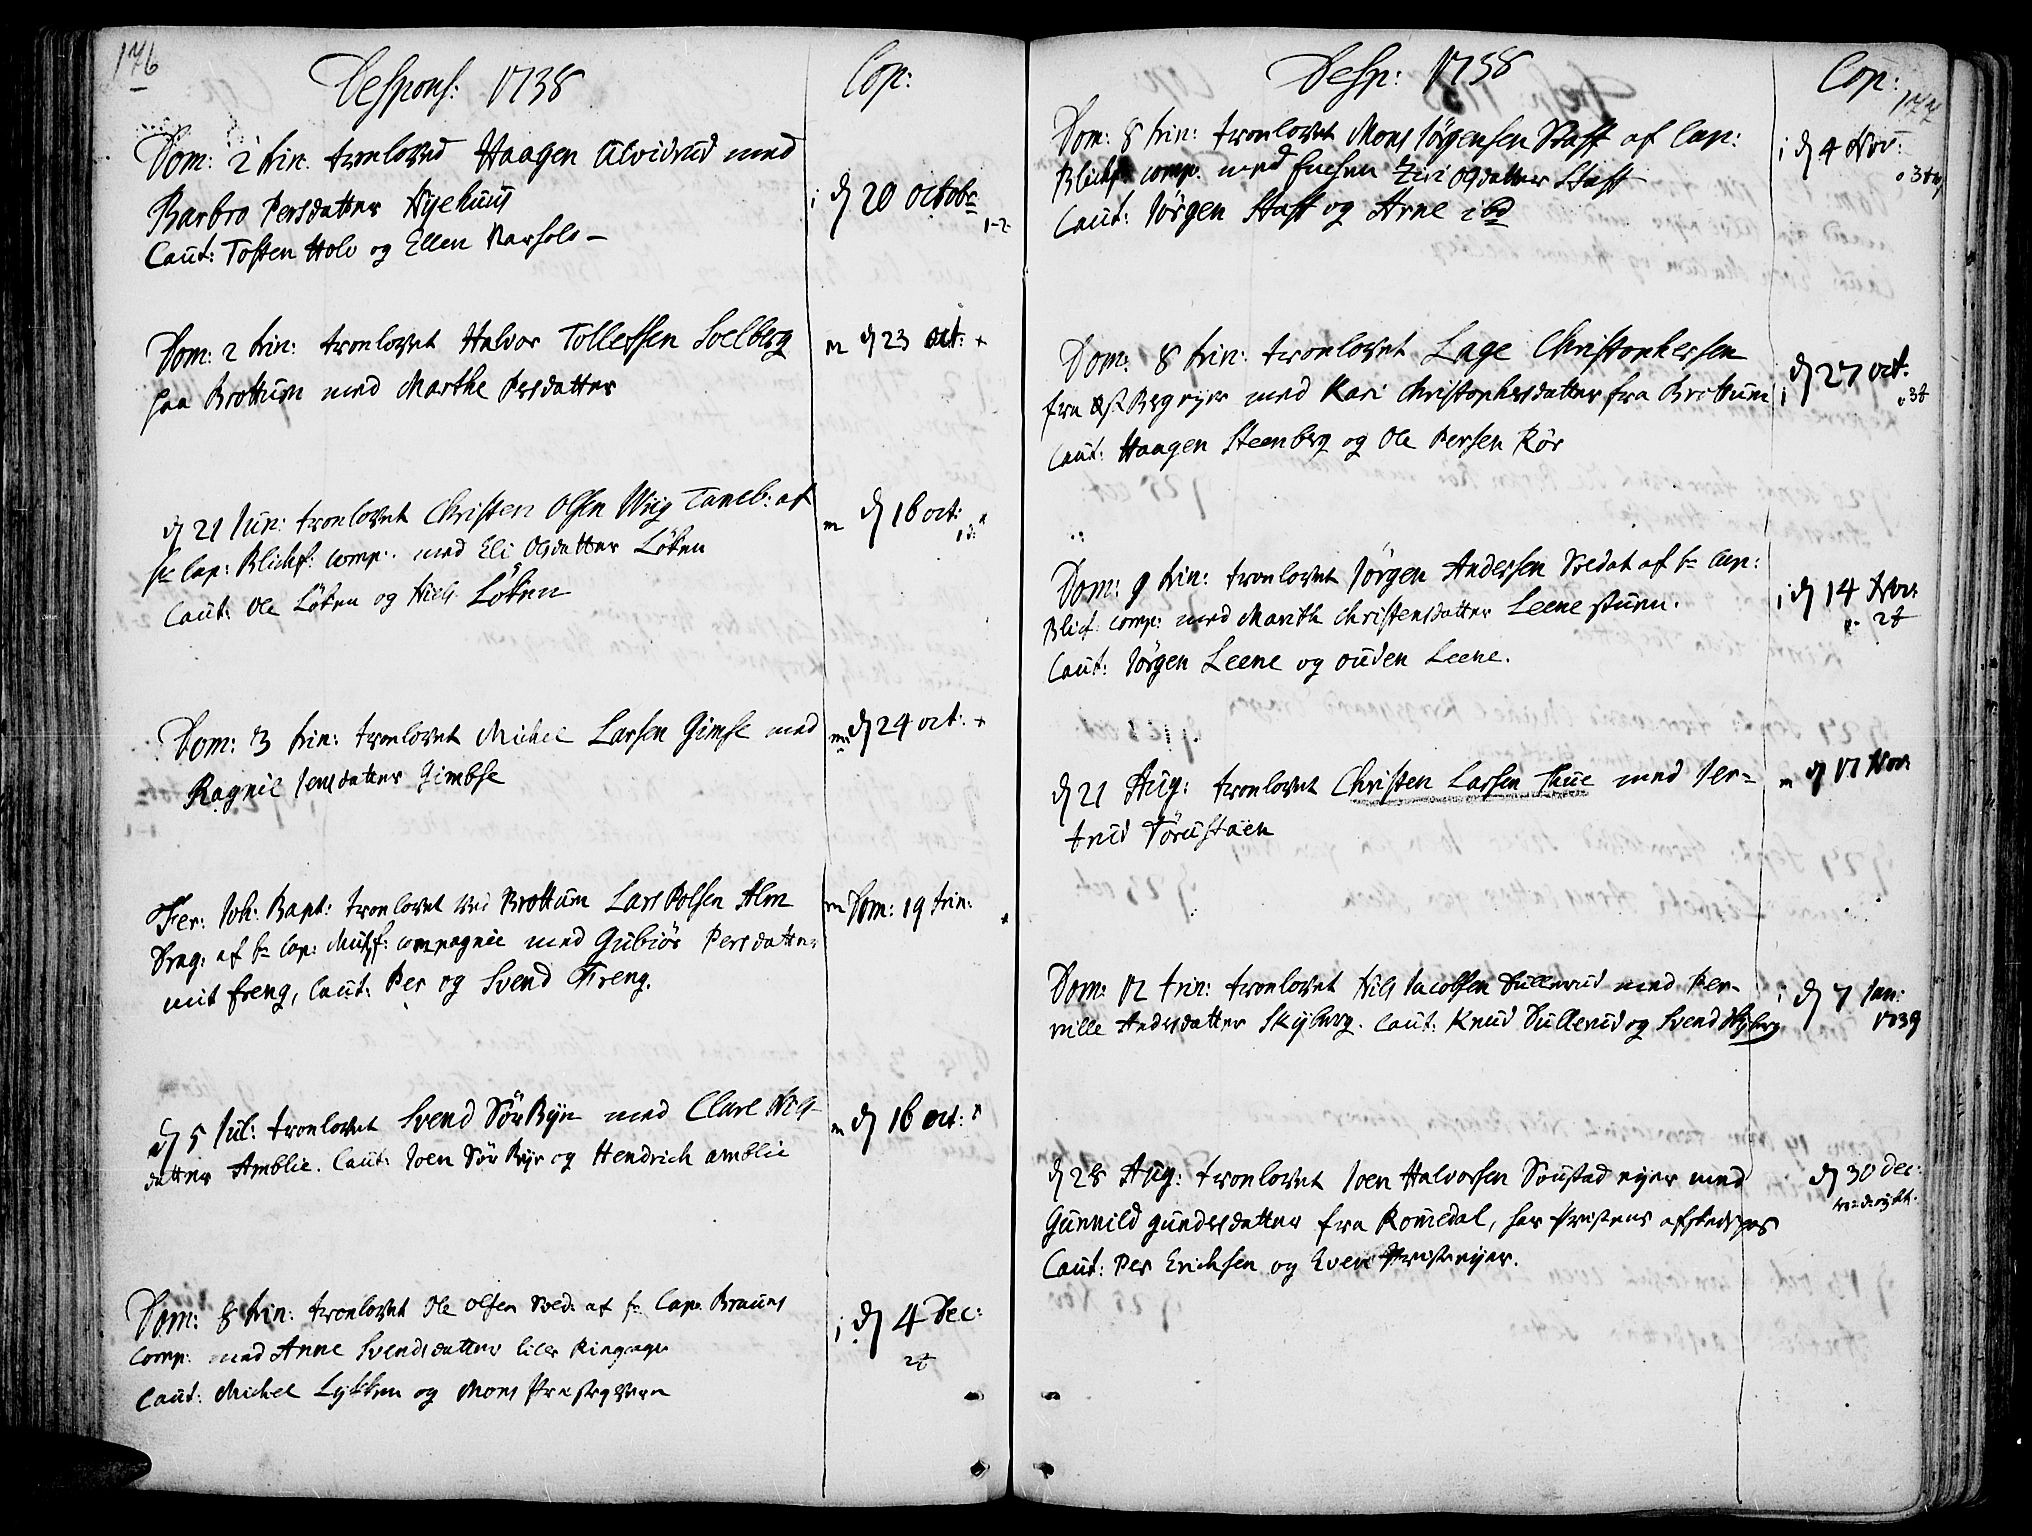 176
Despons: 1738
Cop:
Dom: 2 trin. tronloved Haagen Alvidrud med
Barbro Persdatter Nyehuus
Caut: Tosten Holo og Ellen
i d 20 octobr
1-2
Dom: 2 trin: tronlovet Halvor Tollefsen Solberg
paa Brottum med Marthe Persdatter
m d 23 oct: +
d 21 Jun: tronlovet Christen Olsen Wiig Tamb: af
hr Cap: Blichf: comp: med Eli Olsdatter Löken
Caut: Ole Löken og Niels Löken
m d 16 oct:
Dom: 3 trin: tronlovet Michel Larsen Gimse med
Ragnil Jensdatter Gimbse
m d 24 oct: +
Fer: Joh: Bapt: tronlovet ved Brottum Lars Polsen Alm
Drag: af hr Cap: compagnie med Gubiör Persdatter
Freng, Caut: Per og Svend Freng.
m Dom: 19 trin:
d 5 Jul: tronlovet Svend SörByn med Clare
datter Amblie. Caut: Joen Sör Bye og Hendrich amblie
m d 16 oct:
Dom: 8 trin: tronlovet Ole Olsen Sold: af hr Cap. Brauns
Comp: med Anne Svendsdatter
Caut: Michel Lykken og Mons
i d 4 Dec:
2t
Desp: 1738
Cop:
177
Dom: 8 trin: tronlovet Mons Jörgensen Staff af Cap:
Blichf: comp. med Enchen Ziri Olsdatter Staff
Caut: Jörgen Staff og Arne ibd
i d 4 Nov:
Dom: 8 trin: tronlovet Lage Christophersen
fra Berg eyer med Kari Christophersdatter fra Brottum
Caut: Haagen Steenberg og Ole Persen Rör
i d 27 oct:
3t
Dom: 9 trin: tronlovet Jörgen Andersen Soldat af hr Cap:
Blicf: comp: med Marith Christensdatter Leene stuen.
Caut: Jörgen Leene og ouden Leene.
i d 14 Nov:
2t
d 21 Aug: tronlovet Christen Larsen Thue med Jer=
trud Törustaen
m d 17 Nov:
Dom: 12 trin: tronlovet Nils Jacobsen Sullerud med Per-
nille Andersdatter Skyberg. Caut: Knud Sullerud og Svend Skyberg
i d 7 Jan:
1739
d 28 Aug: tronlovet Joen Halvorsen Soustad eyer med
Gunnild gundersdatter fra Romedal, har Pristens afskeds pas
Caut: Per Erichsen og Even
d 30 Dec: